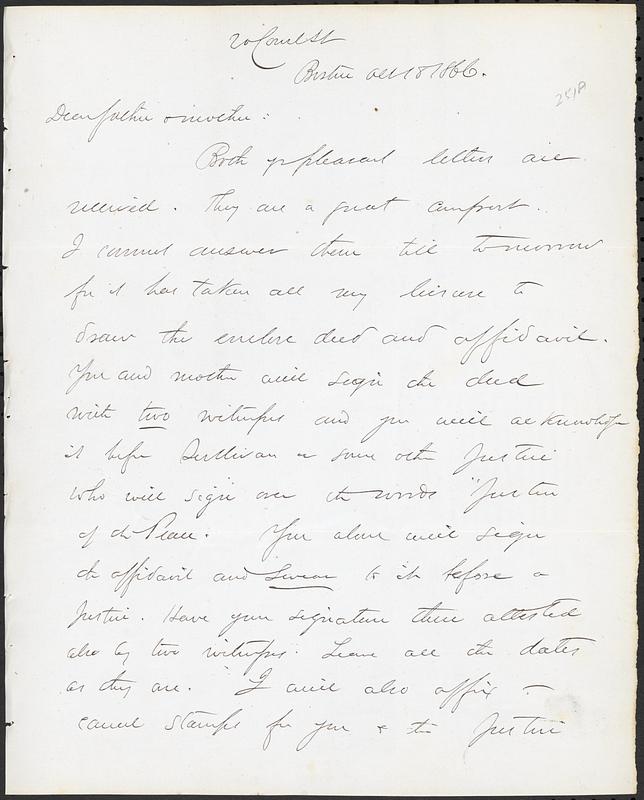 20 Court St
Boston Oct 18 1866.
251A
Dear father & mother:
Both yr pleasant letters are
received. They are a great comfort.
I cannot answer them till tomorrow
for it has taken all my leisure to
draw the enclose deed and affidavit.
You and mother will sign the deed
with two witnesses and you will acknowledge
it before Sullivan or some other Justice
who will sign over the words "Justice
of the Peace. You alone will sign
the affidavit and swear to it before a
Justice. Have your signature there attested
also by two witnesses. Leave all the dates
as they are. I will also affix &
cancel stamps for you & the Justice